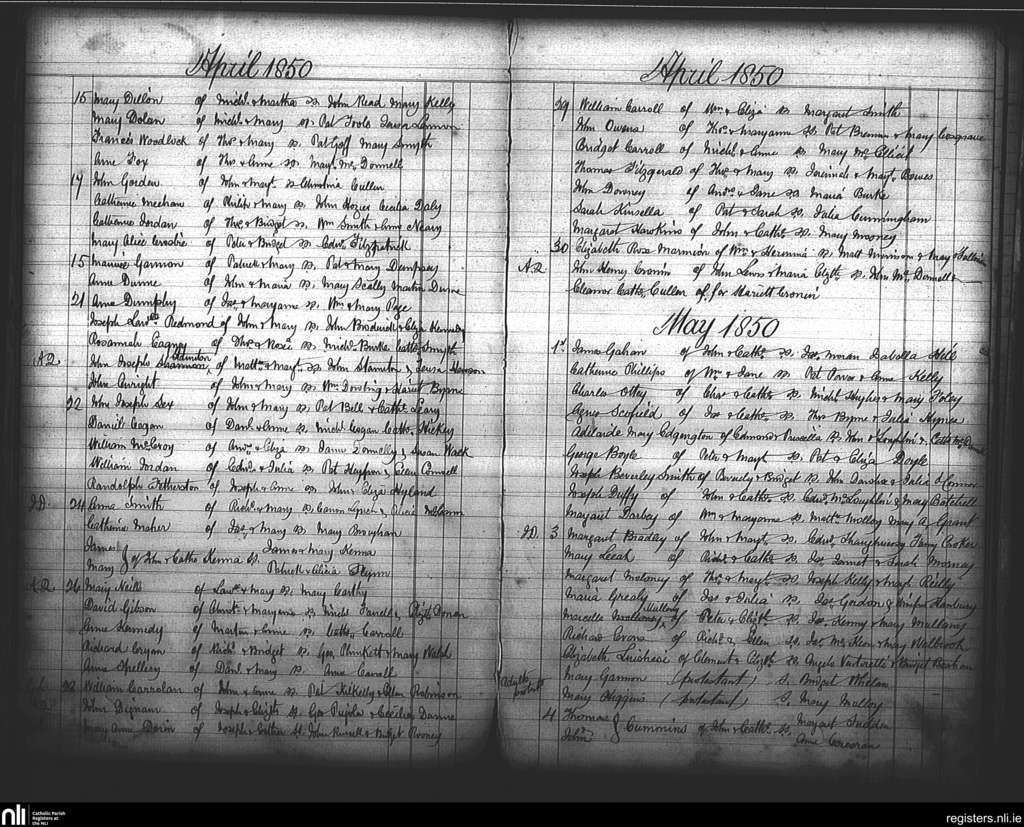 April 1850
15 Mary Dillon of Mich. & Martha Sp. John Read Mary Kelly
Mary Dolan of Mich. & Mary Sp. Pat Toole Lennon
Francis Woodlock of Thos. & Mary Sp. Pat Goff Mary Smyth
Anne Fox of Thos & Anne Sp. Mayt. McDonnell
17 John Gorden of John & Mayt. Sp. Christina Cullen
Catherine Meehan of Philip & Mary Sp. John Hozier Cecilia Daly
Catherine Jordan of Thos. & Bridget Sp. Wm Smith & Anne Neary
Mary Alice of Peter & Bridget Sp. Edw. Fitzpatrick
15 Gannon of Patrick & Mary Sp. Pat & Mary Dempsey
Anne Dunne of John & Maria Sp. Mary Scally Martin Dunne
21 Anne Dumphy of Jas. & Maryanne Sp. Wm & Mary Page
Joseph Lawce Redmond of John & Mary Sp. John Broderick & Eliza Kennedy
Rosannah Eagney of Thos. & Rose Sp. Mich. Burke Cathe. Smyth
A.D. John Joseph of Matt. & Mayt. Sp. John Stanton & Louisa
John Enright of John & Mary Sp. Wm Dowling & Harriet Byrne
22 John Joseph Sex of John & Mary Sp. Pat Bell & Cathe. Leary
Daniel Cagan of Danl. & Anne Sp. Michl. Cogan Cathe. Hickey
William McEvoy of Anw. & Eliza Sp. James Donnelly & Susan Wack
William Jordan of Edwd. & Julia Sp. Pat Heffron & Ellen Connell
Randolph Fetherton of Joseph & Anne Sp. John & Eliza Hyland
J.D. 24 Anna Smith of Richd. & Mary Sp.
Catherine Maher of Jas. & Mary Sp. Mary Boughan
James James & Mary Kenna
Mary } of John & Cathe Kenna Sp. Patrick & Alicia Flynn
A.D. 26 Mary Neill of Lawe & Mary Sp. Mary Carthy
David Gibson of Christ. & Maryanne Sp. Michl Farrell & Eliztt. Doran
Anne Kennedy of Martin & Anne Sp. Cathe. Carroll
Richard Cryan of Richd. & Bridget Sp. Geo. Plunkett & Mary Walsh
Anne Shellery of Danl. & Mary Sp. Anne Carroll
28 William Carrolan of John & Anne Sp. Pat Kilkelly & Ellen Robinson
John Dignam of Joseph & Elizth Sp. Geo & Cecilia Danne
Mary Anne Dorin of Joseph & Esther Sp. John Russell & Bridget Rooney
April 1850
29 William Carroll of Wm & Eliza Sp. Margaret Smith
John Owens of Thos. & Maryanne Sp. Pat Brennan & Mary Cosgrave
Bridget Carroll of Michl. & Anne Sp. Mary
Thomas Fitzgerald of Thos. & Mary Sp. Jeremiah & Mayt. Bowes
John Downey of Andw. & Jane Sp. Maria Burke
Sarah Kinsella of Pat & Sarah Sp. Julia Cunningham
Margaret Hawkins of John & Cathe. Sp. Mary Mooney
30 Elizabeth Rose Marmion of Wm & Sp. Matt Marmion & Mary
A.D. John Henry Cronin of John Lewis & Maria Elizth Sp. John McDonnell &
Eleanor Cathe Cullen for Harriett Cronin
May 1850
1st James Gahan of John & Cathe. Sp. Jas. Isabella Hill
Catherine Phillips of Wm & Jane Sp. Pat Power & Anne Kelly
Charles Ottey of Chas. & Cathe Sp. Michl Hughes & Mary Foley
Agnes Scofield of Jas & Cathe. Sp. Thos Byrne & Julia Hynes
Adelaide Mary Edgington of Edmond & Priscilla Sp. John O'Loughlin &
George Boyle of Peter & Mayt Sp. Pat & Eliza Doyle
Joseph Beverley Smith of Beverley & Bridget Sp. John & Julia O'Connor
Joseph Duffy of John & Cathe Sp. Edwd. McLoughlin & Mary
Margaret Darbey of Wm & Maryanne Sp. Matt. Molloy Mary A. Grant
J.D. 3 Margaret Bradley of John & Mayt. Sp. Edwd. Shaughnessy Fanny Croker
Mary Leech of Richd. & Cathe. Sp. Jas. & Sarah Mooney
Margaret Moloney of Thos. & Mayt. Sp. Joseph Kelly & Mayt. Reilly
Maria Grealy of Jas & Julia Sp. Jas. Gordon &
Marcella Mullaney of Peter & Elizth Sp. Jas. Kenny & Mary Mullany
Richard Evans of Richd. & Ellen Sp. Jas. McKeon & Mary
Elizabeth of Clement & Elizth Sp. Angelo & Bridget
Adults protests Mary Gannon (protestant) S. Bridget Whelan
Mary Higgins (protestant) S. Mary Malloy
4 Thomas } Cummins of John & Cathe. Sp. Margaret
John Anne Corcoran
nli Catholic Parish
Registers at
the NLI
registers.nli.ie